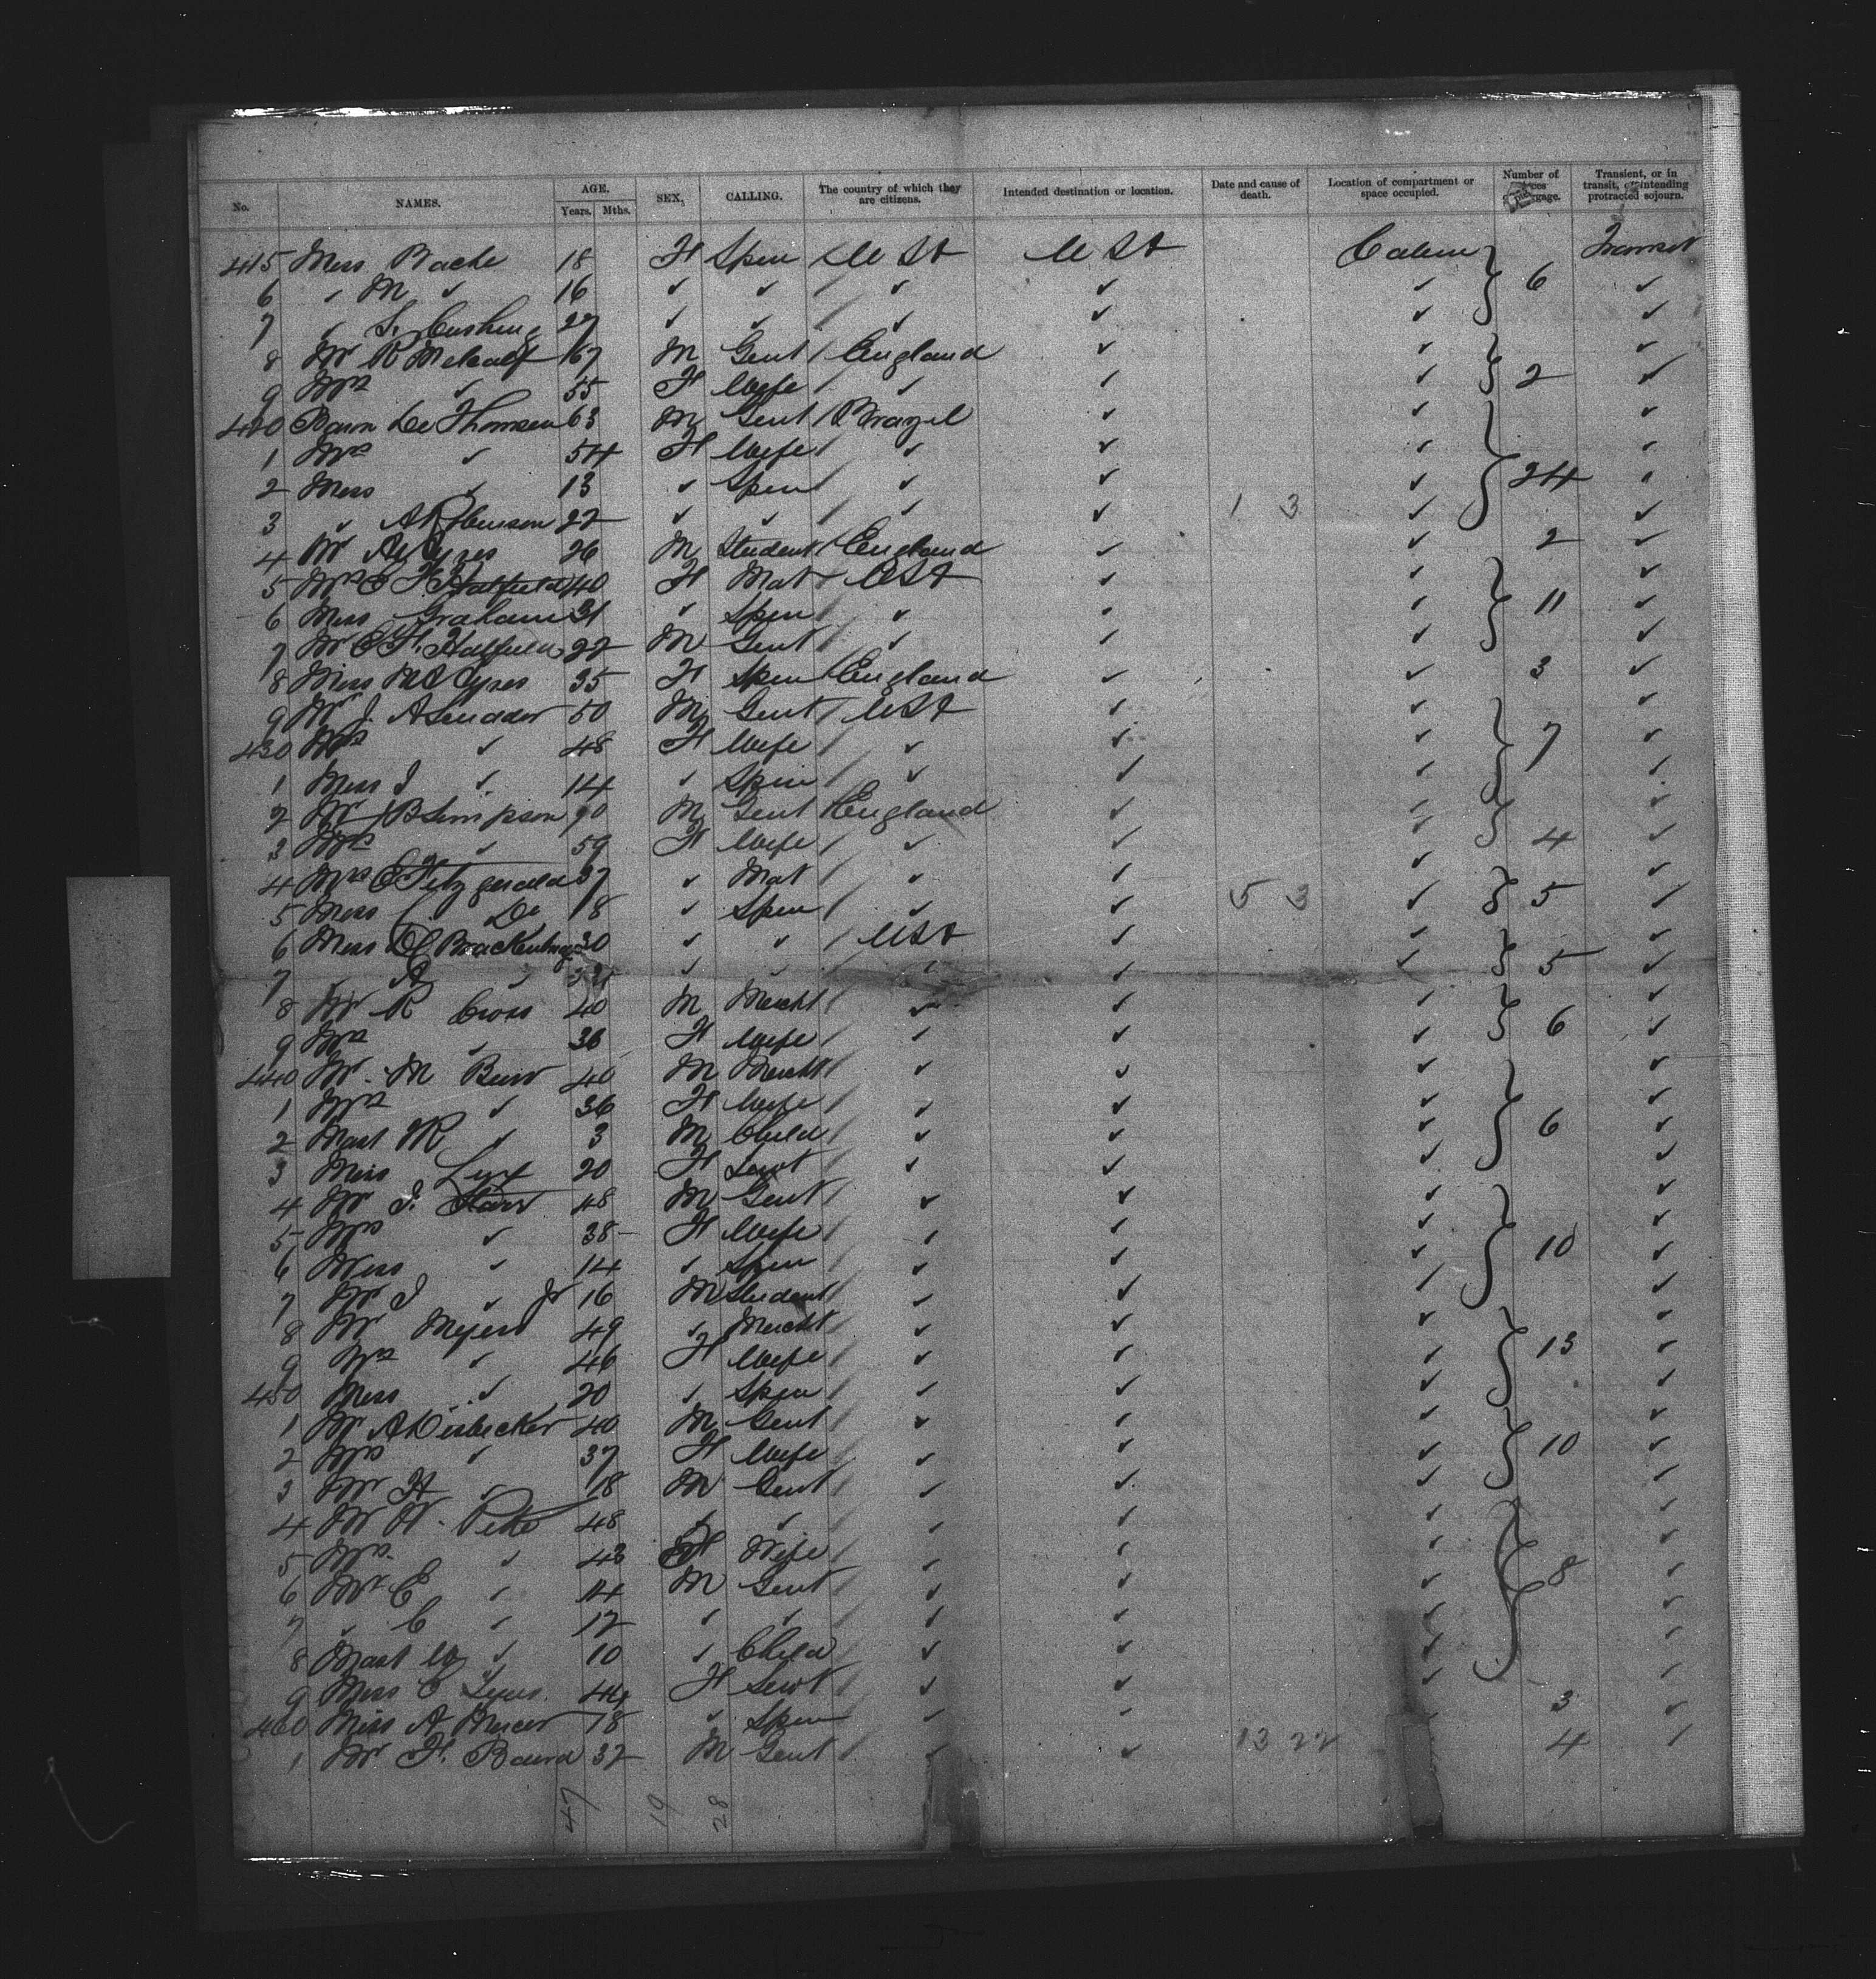 No. NAMES. AGE. Years. Mths. SEX. CALLING. The country of which they are citizens. Intended destination or location. Date and cause of death. Location of compartment or space occupied. Number of baggage. Transient, or in transit, or intending protracted sojourn.
415 Miss Bache 18 F Spin U St U St Cabin Transit
6 ✓ M ✓ 16 ✓ ✓ ✓ ✓ ✓ 6 ✓
7 ✓ S. Cushing 27 ✓ ✓ ✓ ✓ ✓ ✓
8 Mr R Metcalf 67 M Gent England ✓ ✓ ✓
9 Mrs ✓ 55 F Wife ✓ ✓ ✓ 2 ✓
420 Baron De Thomsen 63 M Gent Brazil ✓ ✓ ✓
1 Mrs ✓ 54 F Wife ✓ ✓ ✓ ✓
2 Miss ✓ 13 ✓ Spin ✓ ✓ ✓ 24 ✓
3 ✓ 22 ✓ ✓ ✓ ✓ 1 3 ✓ ✓
4 Mr 26 M Student England ✓ ✓ 2 ✓
5 Mrs E F Hatfield 40 F Mat U St ✓ ✓ ✓
6 Miss Graham 31 ✓ Spin ✓ ✓ ✓ 11 ✓
7 Mr E H. Hatfield 22 M Gent ✓ ✓ ✓ ✓
8 Miss 35 F Spin England ✓ ✓ 3 ✓
9 Mr J. 50 M Gent U St ✓ ✓ ✓
430 Mrs ✓ 48 F Wife ✓ ✓ ✓ 7 ✓
1 Miss J ✓ 14 ✓ Spin ✓ ✓ ✓ ✓
2 Mr B Simpson M Gent England ✓ ✓ ✓
3 Mrs ✓ 59 F Wife ✓ ✓ ✓ 4 ✓
4 Mrs E Fitzgerald 37 ✓ Mat ✓ ✓ ✓ ✓
5 Miss Do 18 ✓ Spin ✓ ✓ 5 3 ✓ 5 ✓
6 Miss Brackenburg 30 ✓ ✓ U St ✓ ✓ ✓
7 ✓ A ✓ ✓ ✓ ✓ ✓ ✓ 5 ✓
8 Mr R Cross 40 M Mercht ✓ ✓ ✓ ✓
9 Mrs ✓ 36 F Wife ✓ ✓ ✓ 6 ✓
440 Mr M Burr 40 M Mercht ✓ ✓ ✓ ✓
1 Mrs ✓ 36 F Wife ✓ ✓ ✓ ✓
2 Mast R ✓ 3 M Child ✓ ✓ ✓ 6 ✓
3 Miss Lux 20 F Servt ✓ ✓ ✓ ✓
4 Mr J. Starr 48 M Gent ✓ ✓ ✓ ✓
5 Mrs ✓ 38 F Wife ✓ ✓ ✓ ✓
6 Miss ✓ 14 ✓ Spin ✓ ✓ ✓ 10 ✓
7 Mr J ✓ Jr 16 M Student ✓ ✓ ✓ ✓
8 Mr Meyers 49 ✓ Mercht ✓ ✓ ✓ ✓
9 Mrs ✓ 46 F Wife ✓ ✓ ✓ 13 ✓
450 Miss ✓ 20 ✓ Spin ✓ ✓ ✓ ✓
1 Mr A Disbecker 40 M Gent ✓ ✓ ✓ ✓
2 Mrs ✓ 37 F Wife ✓ ✓ ✓ 10 ✓
3 Mr H ✓ 18 M Gent ✓ ✓ ✓ ✓
4 Mr H. 48 ✓ ✓ ✓ ✓ ✓ ✓
5 Mrs ✓ 43 F Wife ✓ ✓ ✓ ✓
6 Mr E ✓ 14 M Gent ✓ ✓ ✓ 8 ✓
7 ✓ C ✓ 12 ✓ ✓ ✓ ✓ ✓ ✓
8 Mast W ✓ 10 ✓ Child ✓ ✓ ✓ ✓
9 Miss E 44 F Servt ✓ ✓ ✓ ✓
460 Miss A Mercer 18 ✓ Spin ✓ ✓ ✓ 3 ✓
1 Mr F. Baird 32 M Gent ✓ ✓ 13 22 4 ✓
47 19 28